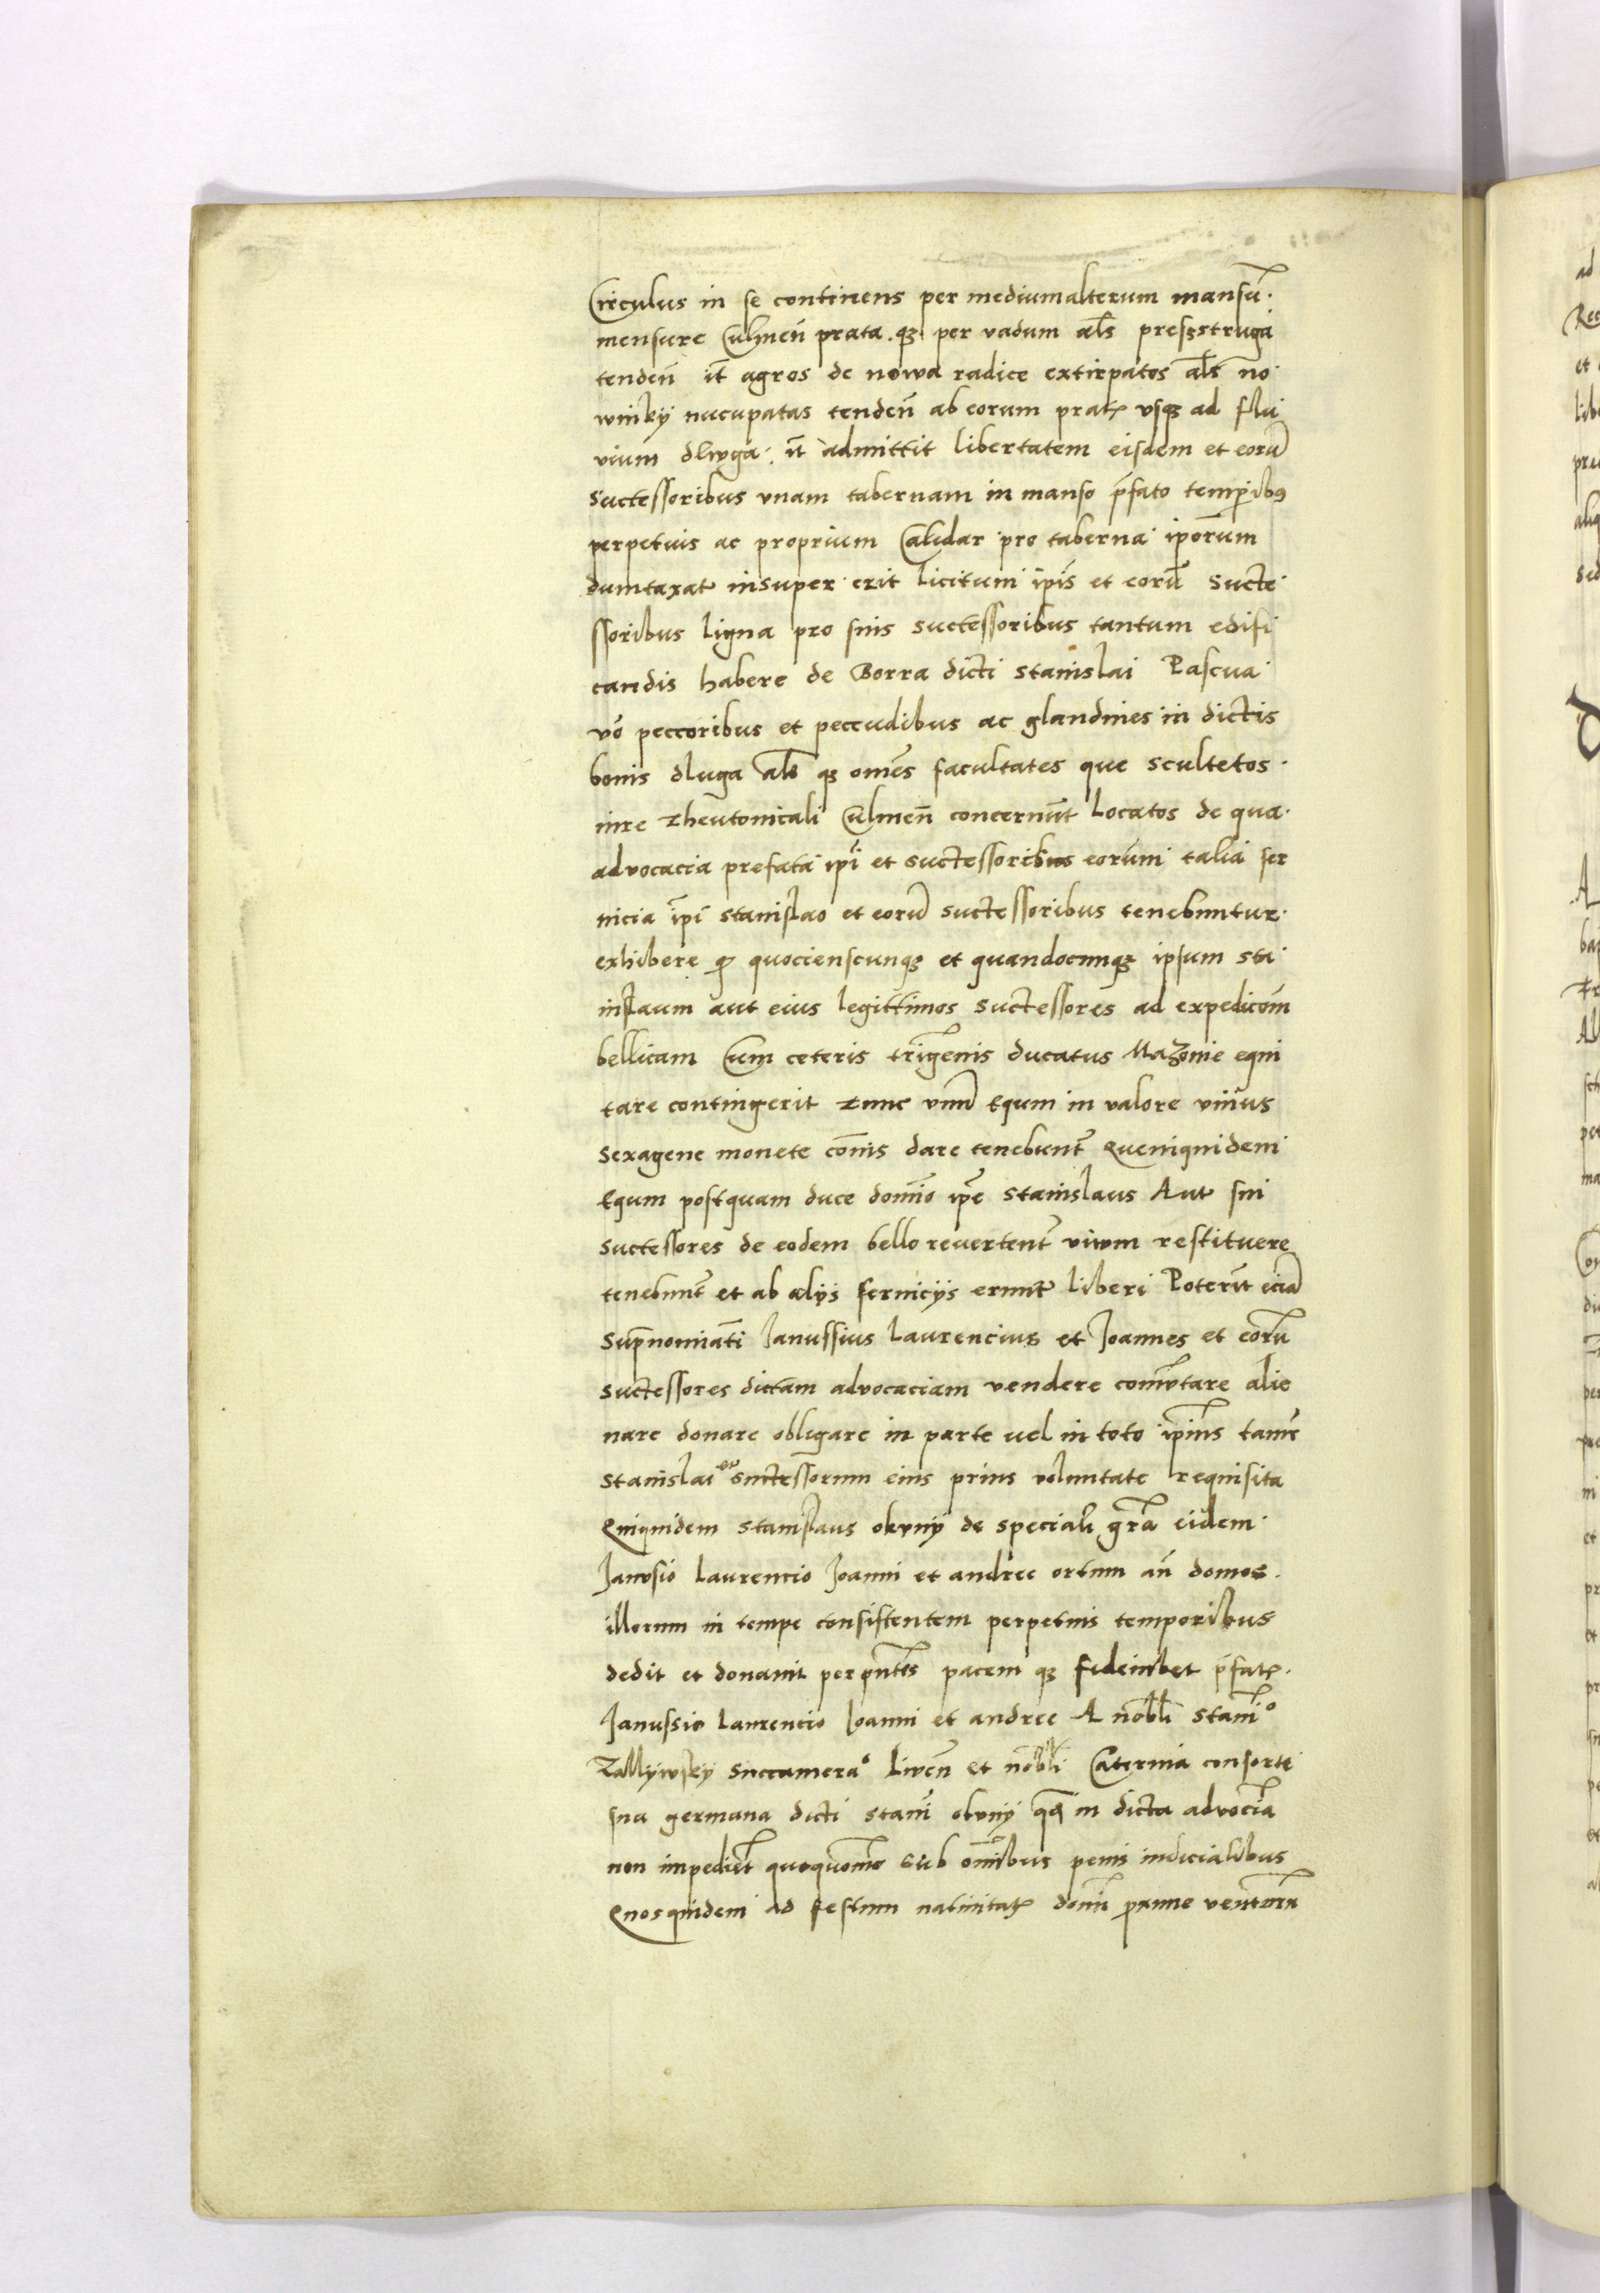 Circulus in se continens per mediumalterum mansū
mensure Culmeñ prata qꝫ per vadum als presstruga
tendeñ it agros de nowa radice extirpatos als no
winkÿ nucupatas tendeñ ab eorum prat vsqꝫ ad flu
vium dlwga it admittit libertatem eisdem et eorū
Suctessoribus vnam tabernam in manso p̄fato temp̄ibꝰ
perpetuis ac proprium Calidar pro taberna ip̄orum
dumtaxat insuper erit licitum ip̄is et eorū Sucte
ssoribus ligna pro suis suctessoribus tantum edifi
candis habere de Borra dicti Stanislai Pascua
vō peccoribus et peccudibus ac glandines in dictis
bonis dluga als qꝫ om̄es facultates que scultetos
iure Theutonicali Culmeñ concernūt Locatos de qua
advocacia prefata ip̄i et suctessoribus eorum talia ser
uicia ip̄i Stanislao et eorū suctessoribus tenebuntur
exhibere qꝫ quociensscunqꝫ et quandocunqꝫ ipsum Sta
nislaum aut eius legittimos suctessores ad expedicōm
bellicam Cum ceteris trigenis ducatus Mazouie equi
tare contingerit Tunc vnū Equm in valore vnius
Sexagene monete cōmis dare tenebunt Quemquidem
Equm postquam duce domīo ip̄e Stanislaus Aut sui
suctessores de eodem bello revertent viwm restituere
tenebunt et ab alÿs seruicÿs erunt liberi Poterūt eciā
Sup̄nomiati Janussius Laurencius et Joannes et eorū
suctessores dictam advocaciam vendere com̄vtare alie
nare donare obligare in parte uel in toto ip̄ius tamē
Stanislai et suctessorum eius prius voluntate requisita
Quiquidem Stanislaus okvnÿ de speciali gr̄a eidem
Janvsio Laurencio Joanni et andree ortum añ domos
illorum in tempe consistentem perpetuis temporibus
dedit et donauit per p̄ntes pacem qꝫ fideiubet p̄fat
Janussio Laurencio Joanni et andree A nobli Stani°
Zallÿwskÿ Succamera° Liweñ et nobli Caterina consorte
sua germana dicti Stani okvnÿ qꝫ in dicta advocīa
non impediet quoquomō sub om̄ibus penis iudicialibus
Quosquidem ad festum natiuitat domī p̄xime ventura